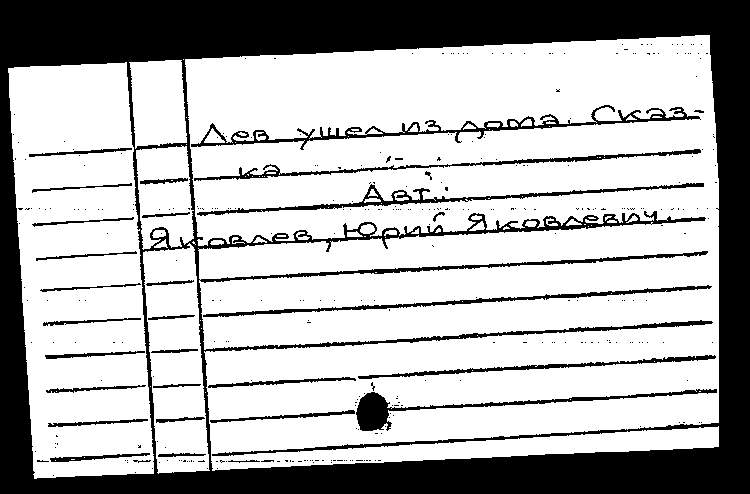 Лев ушел из дома. Сказ-
ка
Авт.:
Яковлев, Юрий Яковлевич.